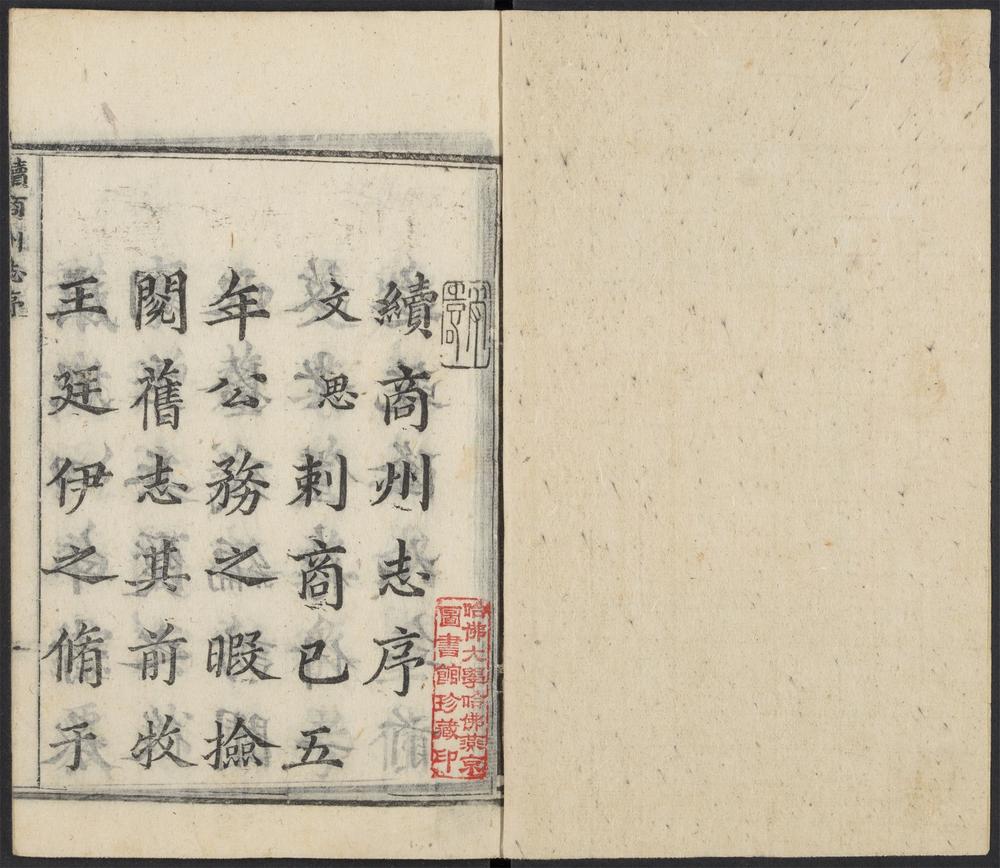 續商州志序
文思刺商已五
年公務之暇撿
閱舊志其前牧
王廷伊之脩于
續商州志序
哈佛大學哈佛燕京
圖書館珍藏印